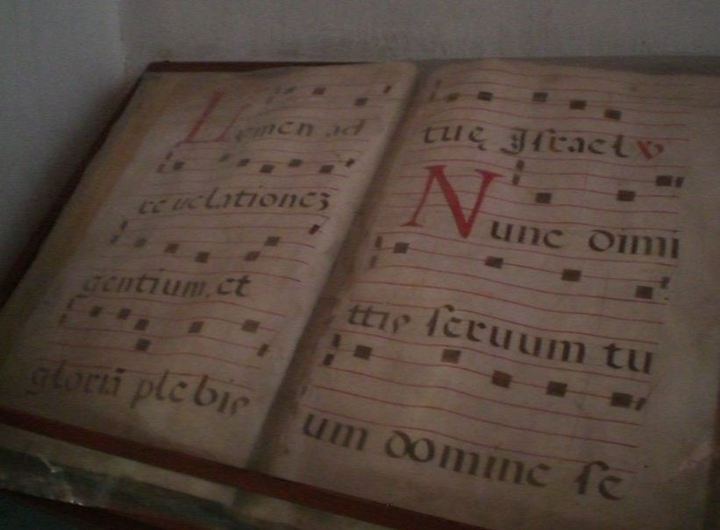 Lumen ad
reuelationez
gentium. et
gloriā plebis
tuę Israel v
Nunc dimi
ttis seruum tu
um domine se